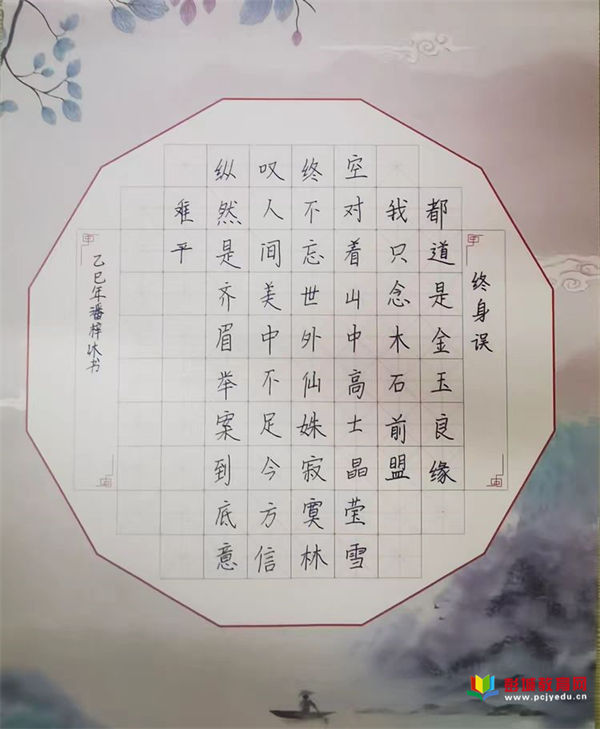 终身误
都道是金玉良缘
我只念木石前盟
空对着山中高士晶莹雪
终不忘世外仙姝寂寞林
叹人间美中不足今方信
纵然是齐眉举案到底意
难平
乙巳年潘梓沐书
教育网
www.pcjyedu.cn